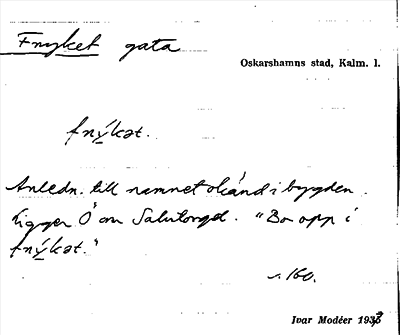 Fnyket gata
Oskarshamns stad, Kalm. l.
fnýkət.
Anledn. till namnet okänd i bygden.
Ligger Ö om Salutorget. "Bo opp i
fnýkət."
s. 160.
Ivar Modéer 1933